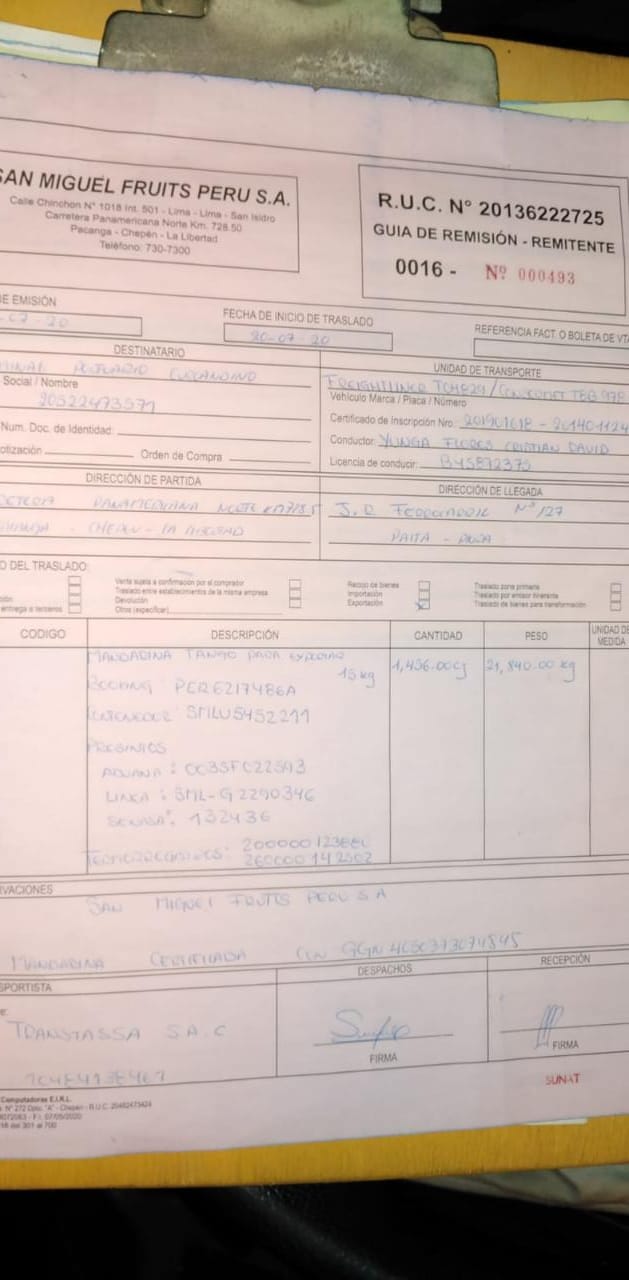 SAN MIGUEL FRUITS PERU S.A.
Calle Chinchon N° 1018 Int. 501 - Lima - Lima - San Isidro
Carretera Panamericana Norte Km. 728.50
Pacanga - Chepén - La Libertad
Teléfono: 730-7300
R.U.C. N° 20136222725
GUIA DE REMISIÓN - REMITENTE
0016 - Nº 000493
DE EMISIÓN
-07-20
FECHA DE INICIO DE TRASLADO
20-07-20
REFERENCIA FACT. O BOLETA DE
DESTINATARIO
PORTUARIO EUROANDINO
Social / Nombre
20522473571
Num. Doc. de Identidad:
otización Orden de Compra
UNIDAD DE TRANSPORTE
Vehículo Marca / Placa / Número
Certificado de Inscripción Nro:
Conductor: YUNGA FLORES CRISTIAN DAVID
Licencia de conducir: B45872375
DIRECCIÓN DE PARTIDA
PANAMERICANA NORTE
CHEPEN - LA LIBERTAD
DIRECCIÓN DE LLEGADA
N° 127
PAITA - PIURA
O DEL TRASLADO:
entrega a terceros
Venta sujeta a confirmación por el comprador
Traslado entre establecimientos de la misma empresa
Devolución
Otros (especificar)
Recojo de bienes
Importación
Exportación
Traslado zona primaria
Traslado por emisor itinerante
Traslado de bienes para transformación
CODIGO DESCRIPCIÓN CANTIDAD PESO UNIDAD DE MEDIDA
MANDARINA TANGO PARA EXPORTAR
15 kg 1,456.00 21,840.00 kg
BOOKING PER6217486A
CONTENEDOR SMLU5452211
PRECINTOS
ADUANA:
LINEA: SML-G2290346
SENASA: 132436
TERMOREGISTROS:
VACIONES
SAN MIGUEL FRUITS PERU S A
MANDARINA CERTIFICADA CON GGN
SPORTISTA
TRANSTASSA S.A.C
DESPACHOS
FIRMA
RECEPCIÓN
FIRMA
SUNAT
Computadoras E.I.R.L.
N° 272 Dpto. "A" - Chepen - R.U.C. 20482473424
F.I. 07/05/2020
del 301 al 700